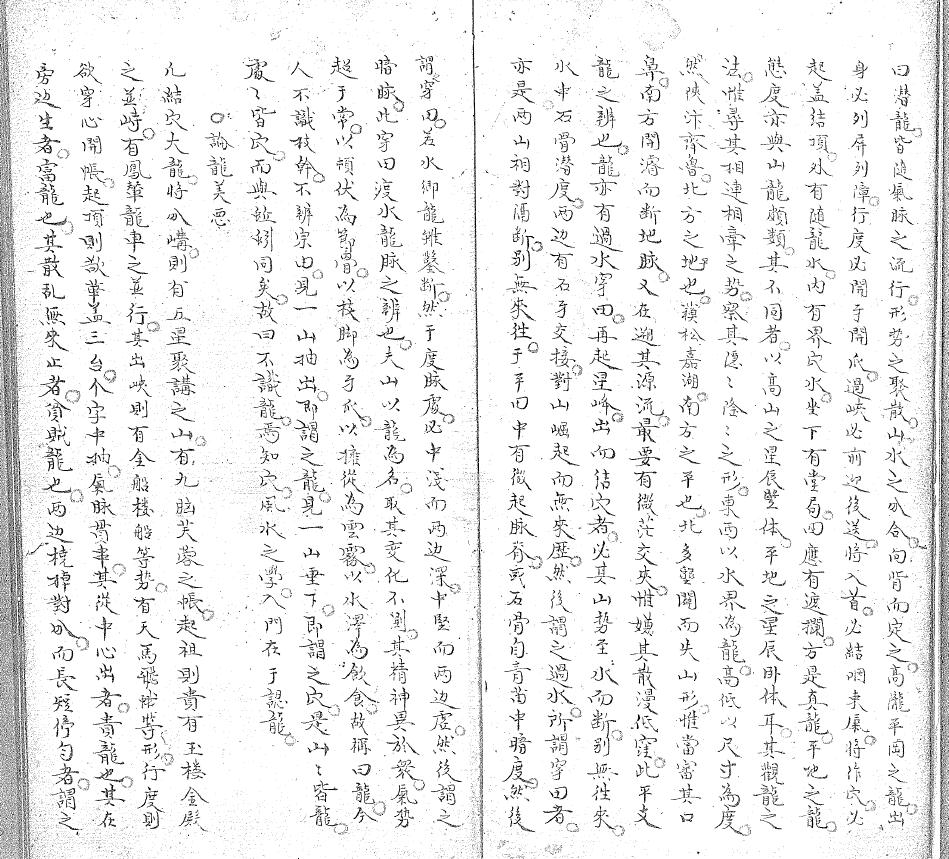 曰潛龍皆隨氣脉之流行形勢之聚散山水之分合向背而定之高隴平岡之龍出
身必列屏列障行度必開手開爪過峽必前迎後送將入首必結咽束氣將作穴必
起盖結頂外有隨龍水內有界穴水坐下有堂局田應有遮攔方是真龍平地之龍
態度亦與山龍頗類其不同者以高山之星辰豎体平地之星辰卧体耳其觀龍之
法惟尋其相連相牽之勢察其隱〻隆〻之形東西以水界為龍高低以尺寸為度
然陜汴齊魯北方之地也蘓松嘉湖南方之平也北多墾闢而失山形惟當審其口
鼻南方開濬而断地脉又在遡其源流最要有微茫交夾惟嫌其散漫低窪此平支
龍之辨也龍亦有過水穿田再起星峰出向結穴者必其山勢至水而断别無徃來
水中石骨潛度两边有石牙交接對山崛起而無來歷然後謂之過水所謂穿田者
亦是两山相對隔断别無來徃于平田中有微起脉脊或石骨自青苗中暗度然後
謂穿田若水御龍雖鑿断然于度脉處必中浅而两边深中堅而两边虚然後謂之
暗脉此穿田渡水龍脉之辨也夫山以龍為名取其变化不測其精神異於衆氣势
超于常以頓伏為節以枝脚為手爪以擁從為雲霧以水澤為飲食故稱曰龍今
人不識枝幹不辨宗由見一山抽出即謂之龍見一山垂下即謂之穴是山〻皆龍
處〻皆穴而與蚯蚓同矣故曰不識龍焉知穴風水之學入門在于認龍
論龍美惡
凡結穴大龍將分嶂則有五星聚講之山有九腦芙蓉之帳起祖則貴有玉楼金殿
之並峙有鳳輦龍車之並行其出峽則有全船楼船等势有天馬飛蛾等形行度則
欲穿心開帳起頂則欲華盖三台个字中抽氣脉貫串其從中心出者貴龍也其在
旁边生者富龍也其散乱無來止者貧賤龍也两边橈棹對分而長短停匀者謂之